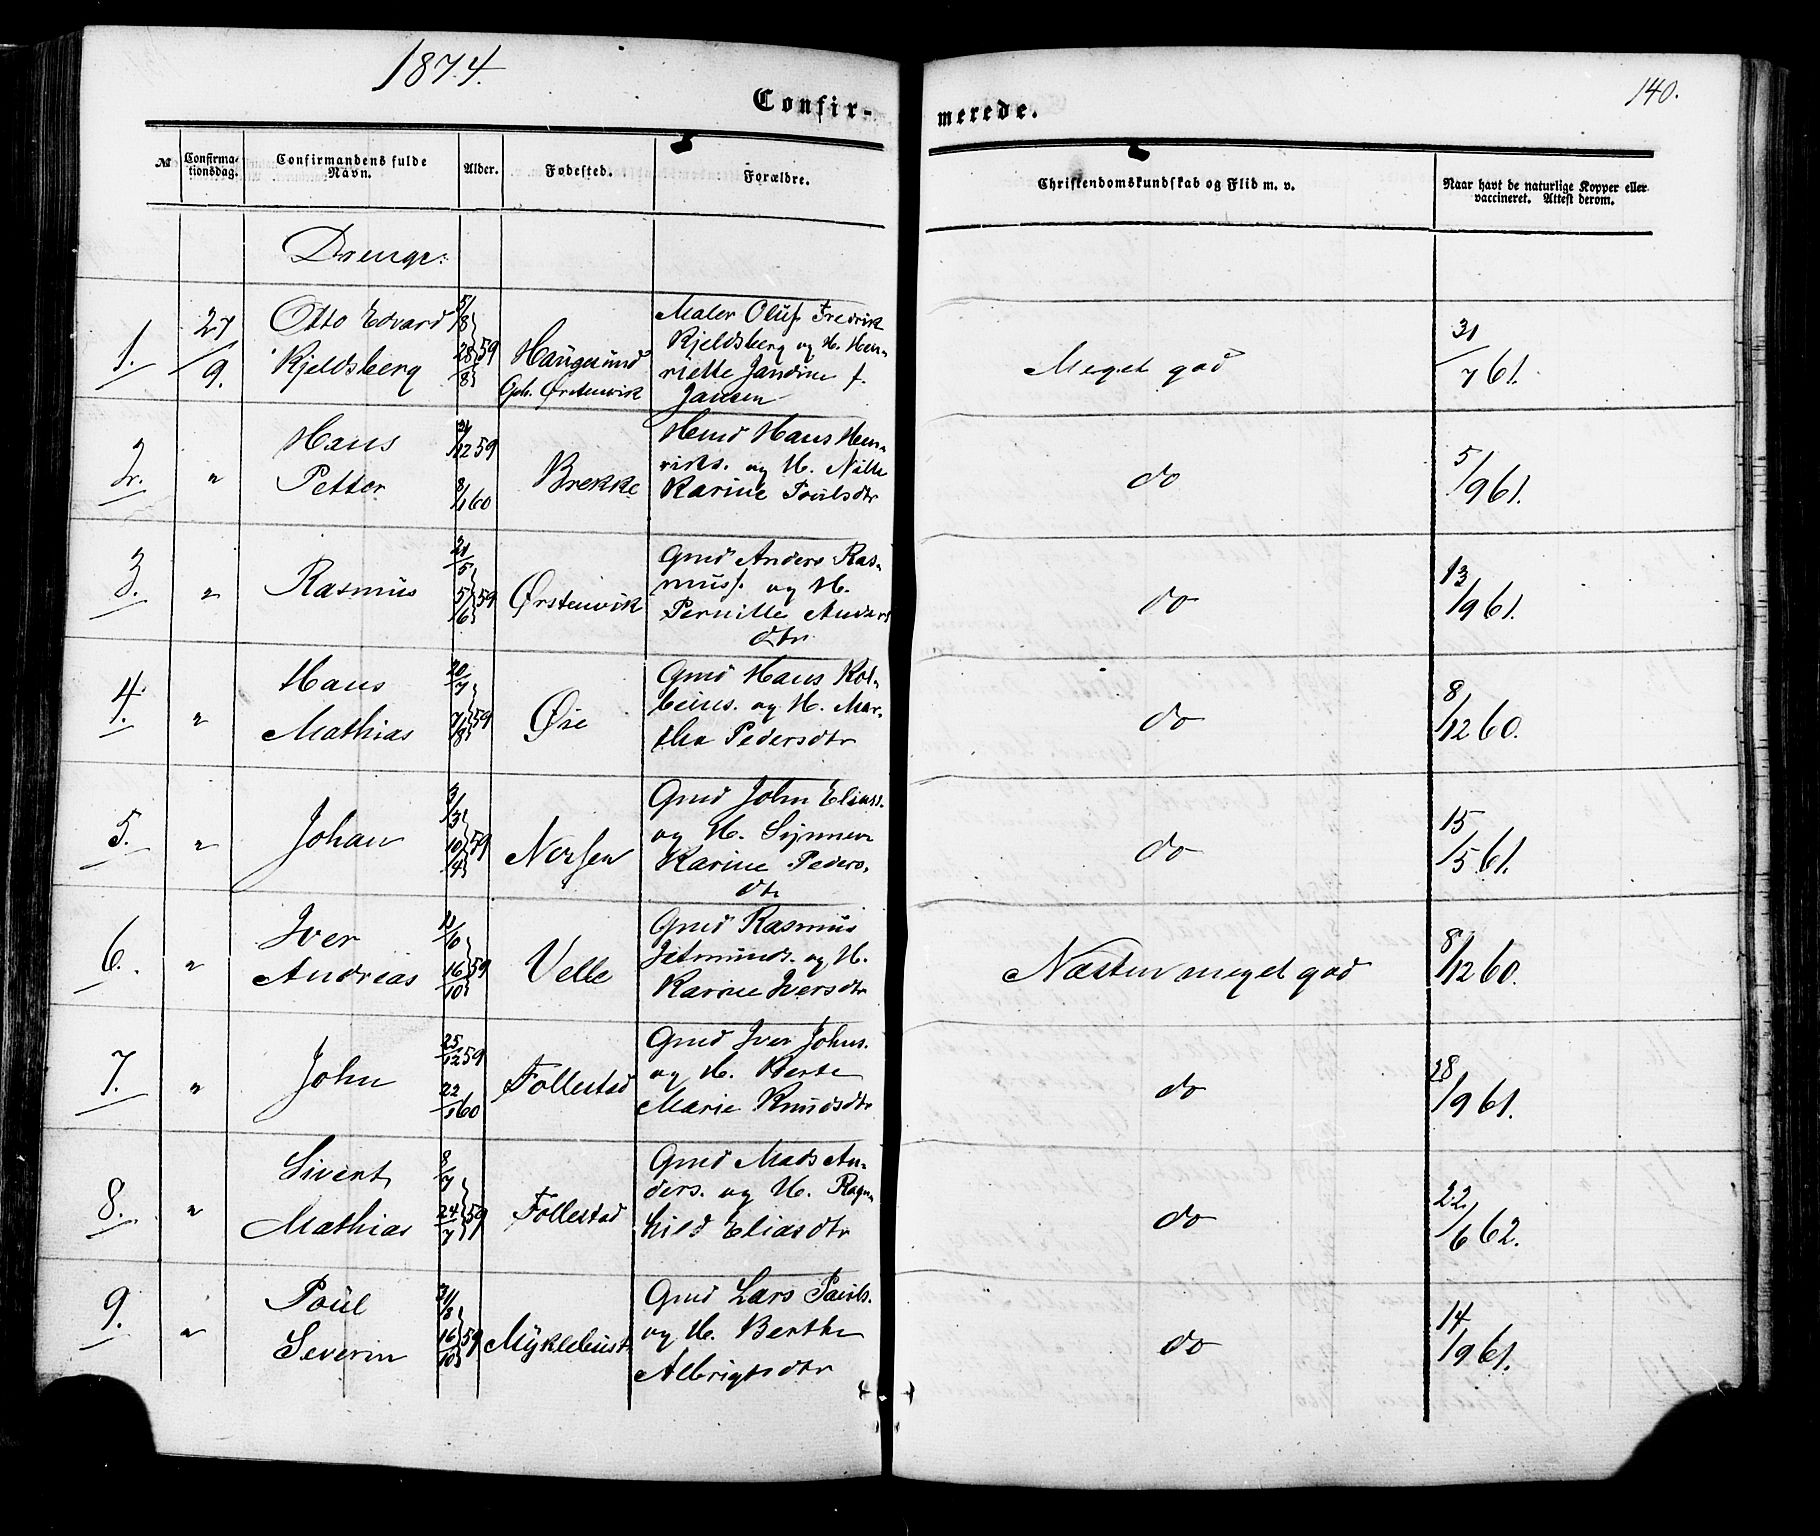 1874.
140.
Confir-
merede.
№
Confirma-
tionsdag.
Confirmandens fulde
Navn.
Alder.
Fødested.
Forældre.
Christendomskundskab og Flid m. v.
Naar havt de naturlige Kopper eller
vaccineret. Attest derom.
Drenge:
1. 27/9. Otto Edvard
Kjeldsberg
5/8 28/8 } 59
Haugesund
Oph. Ørstenvik
Maler Oluf Fredrik
Kjeldsberg og H. Hen-
riette Jandine f.
Jansen
Meget god
31/7 61.
2. "
Hans
Petter
31/12 59
8/1 60
Brekke
Hmd Hans Hen-
riks. og H. Nille
Karine Poulsdtr
do
5/9 61.
3. "
Rasmus
21/5 5/6 } 59
Ørstenvik
Gmd Anders Ras-
muss. og H.
Pernille Anders
dtr
do
13/9 61.
4. "
Hans
Mathias
20/7 7/8 } 59
Øie
Gmd Hans Kol-
beins. og H. Mar-
tha Pedersdtr
do
8/12 60.
5. "
Johan
3/3 10/4 } 59
Gmd John Eliass.
og H. Synneve
Karine Peders-
dtr
do
15/5 61.
6. "
Iver
Andreas
11/10 16/10 } 59
Velle
Gmd Rasmus
Jetmunds. og H.
Karine Iversdtr
Næsten meget god
8/12 60.
7. "
John
25/12 59
22/1 60
Follestad
Gmd Iver Johns.
og H. Berte
Marie Knudsdtr
do
28/9 61.
8. "
Sivert
Mathias
8/7 24/7 } 59
Follestad
Gmd Mads An-
ders. og H. Ragn-
hild Eliasdtr
do
22/6 62.
9. "
Poul
Severin
16/10 } 59
Myklebust
Gmd Lars Pauls.
og H. Berthe
Albrigtsdtr
do
14/9 61.